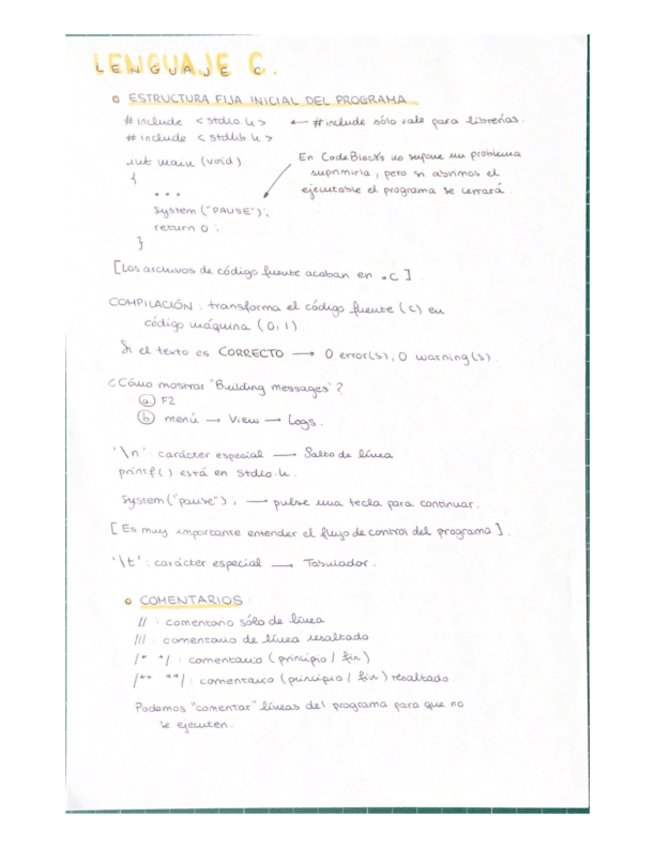 LENGUAJE C.
ESTRUCTURA FIJA INICIAL DEL PROGRAMA.
#include <stdio.h> ← #include sólo vale para librerías.
#include <stdlib.h>
int main (void)
{
...
System ("PAUSE");
return 0;
}
En CodeBlocks no supone un problema
suprimirla, pero si abrimos el
ejecutable el programa se cerrará.
[Los archivos de código fuente acaban en .C]
COMPILACIÓN: transforma el código fuente (C) en
código máquina (0,1).
Si el texto es CORRECTO → 0 error(s), 0 warning(s).
¿Cómo mostrar "Building messages"?
a) F2
b) menú → View → Logs.
'\n': carácter especial → Salto de línea
printf() está en stdio.h.
System("pause"); → pulse una tecla para continuar.
[Es muy importante entender el flujo de control del programa].
'\t': carácter especial → Tabulador.
COMENTARIOS:
// : comentario sólo de línea
/// : comentario de línea resaltado
/* */ : comentario (principio / fin)
/** **/ : comentario (principio / fin) resaltado.
Podemos "comentar" líneas del programa para que no
se ejecuten.